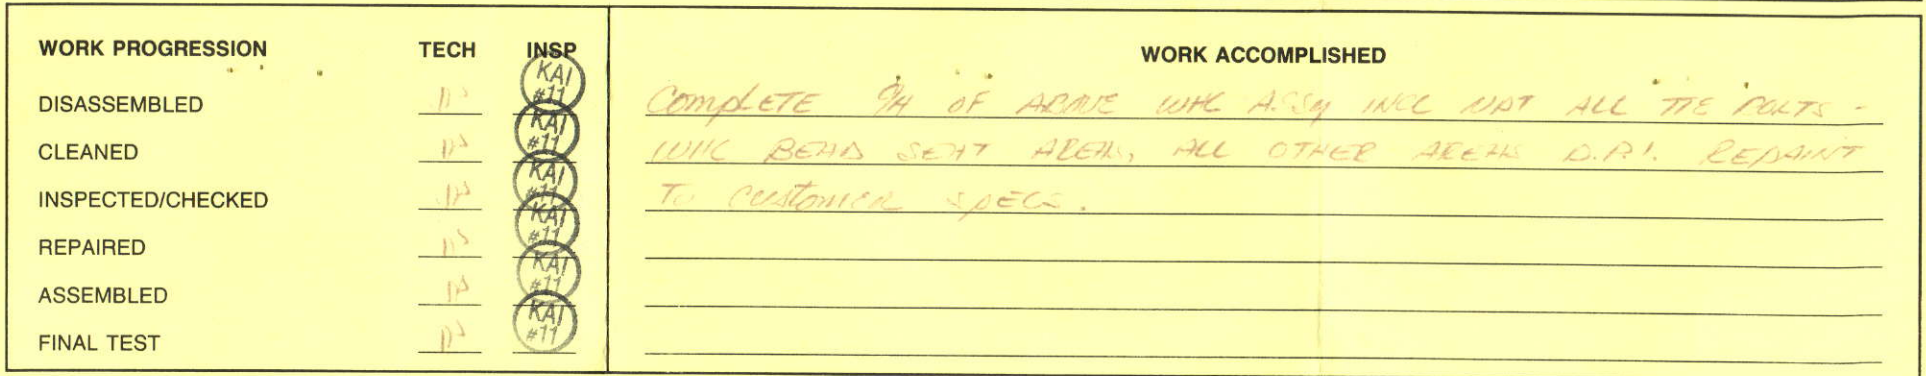 WORK PROGRESSION TECH INSP
DISASSEMBLED KAI #11
CLEANED KAI #11
INSPECTED/CHECKED KAI #11
REPAIRED KAI #11
ASSEMBLED KAI #11
FINAL TEST KAI #11
WORK ACCOMPLISHED
COMPLETE O/H OF ABOVE WHL ASSY INCL NDT ALL TIE BOLTS -
WHL BEAD SEAT AREAS, ALL OTHER AREAS D.P.I. REPAINT
TO CUSTOMER SPECS.